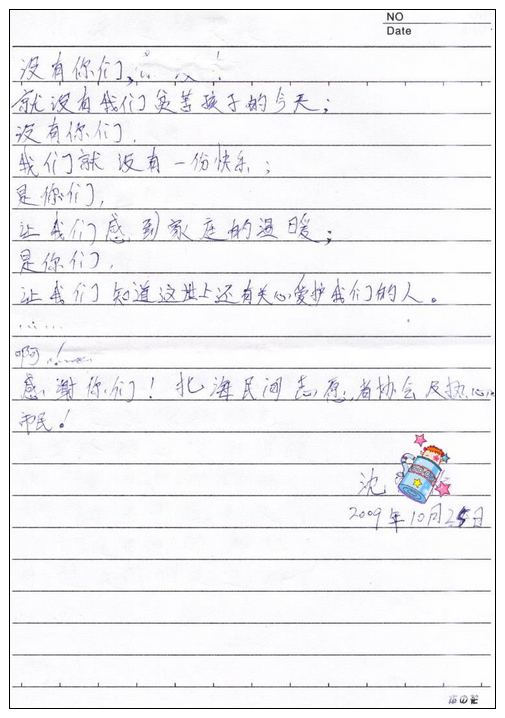 NO
Date
没有你们,
就没有我们贫苦孩子的今天;
没有你们,
我们就没有一份快乐;
是你们,
让我们感到家庭的温暖;
是你们,
让我们知道这世上还有关心爱护我们的人。
......
啊!
感谢你们!北海民间志愿者协会及热心
市民!
沈
2009年10月25日